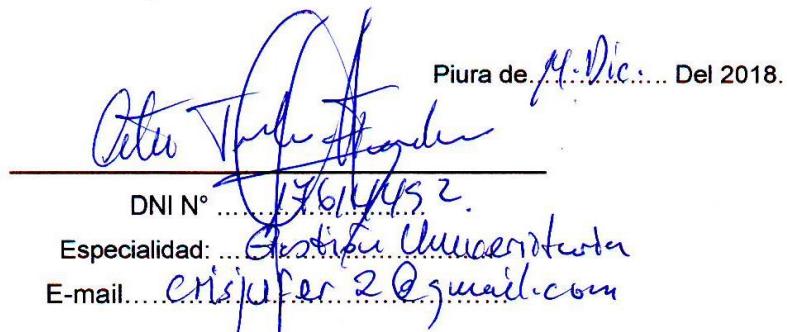 Piura de M. Dic. Del 2018.
DNI N° 17614492.
Especialidad: Gestión Universitaria
E-mail crisjufer2@gmail.com